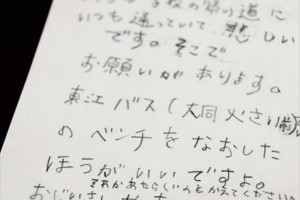 の帰り道に
いつも通っていて、悲しい
です。そこで
お願いがあります。
東江バス(大同火さい前)
のベンチをなおした
ほうがいいですよ。
それかあたらしいのとかえてください
おじいさん